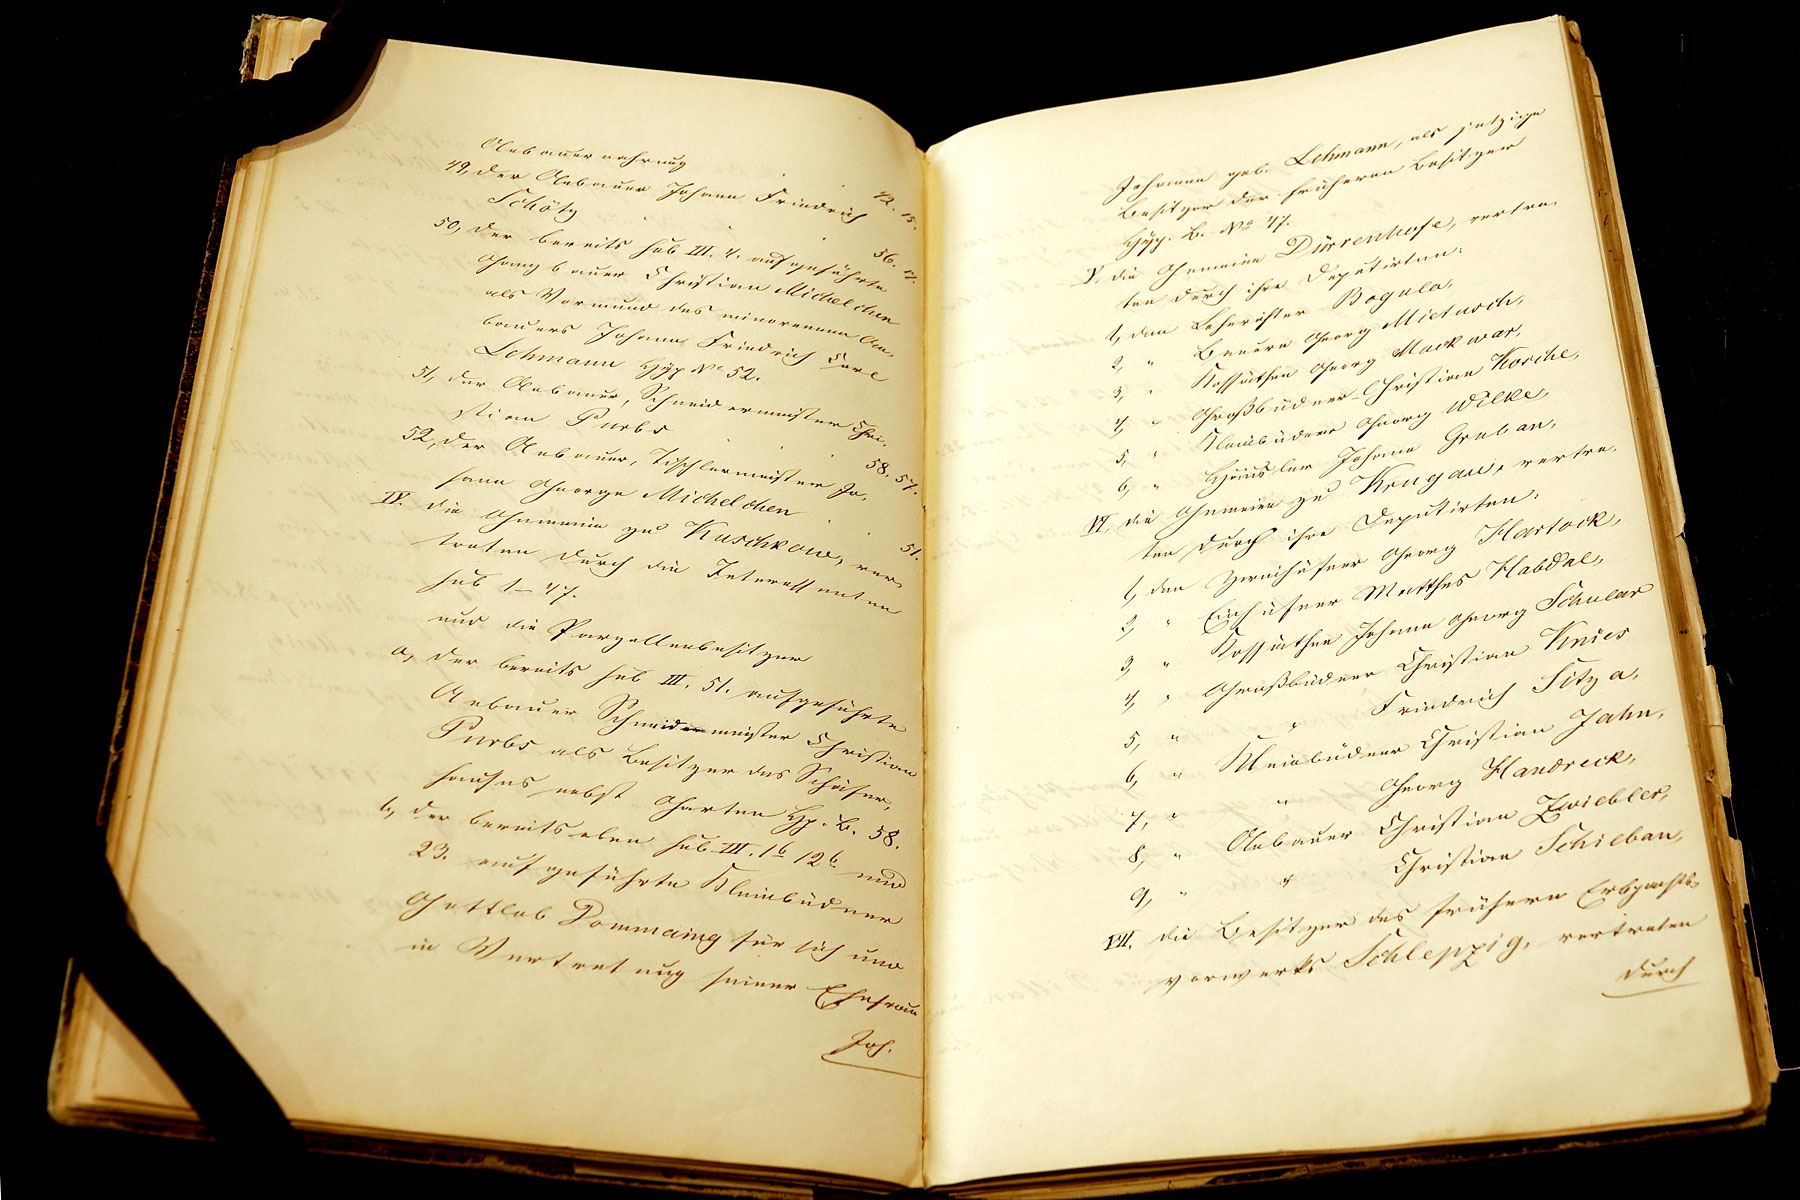 Anbauernahrung
49, der Anbauer Johann Friedrich 42. 15.
Schötz
50, der bereits sub III. 4. aufgeführte 56. 17.
Ganzbauer Christian Michelchen
als Vormund des minorennen An-
bauers Johann Friedrich Carl
Lehmann Hyp. No 52.
51, der Anbauer, Schneidermeister Chri-
stian Purbs 58. 57.
52, der Anbauer, Tischlermeister Jo-
hann George Michelchen 51.
IV. die Gemeine zu Kuschkow, ver-
treten durch die Interessenten
sub 1–47.
und die Parzellenbesitzer
a, der bereits sub III. 51. aufgeführte
Anbauer Schneidermeister Christian
Purbs als Besitzer des Schäfer-
hauses nebst Garten Hyp. B. 58.
b, der bereits oben sub III. 1b 12b und
23. aufgeführte Kleinbüdner
Gottlob Dommaing für sich und
in Vertretung seiner Ehefrau
Joh.
Johanne geb. Lehmann, als jetzige
Besitzer der früheren Besitzer
Hyp. B. No 47.
V. die Gemeine Dürrenhofe, vertre-
ten durch ihre Deputirten:
1, den Lehnrichter Bogula,
2, " Bauern Georg Mietusch,
3, " Kossäthen Georg Mackwar,
4, " Großbüdner Christian Kosche,
5, " Kleinbüdner Georg Wilke,
6, " Häusler Johann Gruban,
VI. die Gemeine zu Krugau, vertre-
ten durch ihre Deputirten:
1, den Zweihüfner Georg Hartock,
2, " Einhüfner Matthes Habdke,
3, " Kossäthen Johann Georg Schular
4, " Großbüdner Christian Knies
5, " " Friedrich Sitza,
6, " Kleinbüdner Christian Jahn,
7, " " Georg Handreck,
8, " Anbauer Christian Zwiebler,
9, " " Christian Schieban,
VII. die Besitzer des frühern Erbpachts-
vorwerks Schlepzig, vertreten
durch